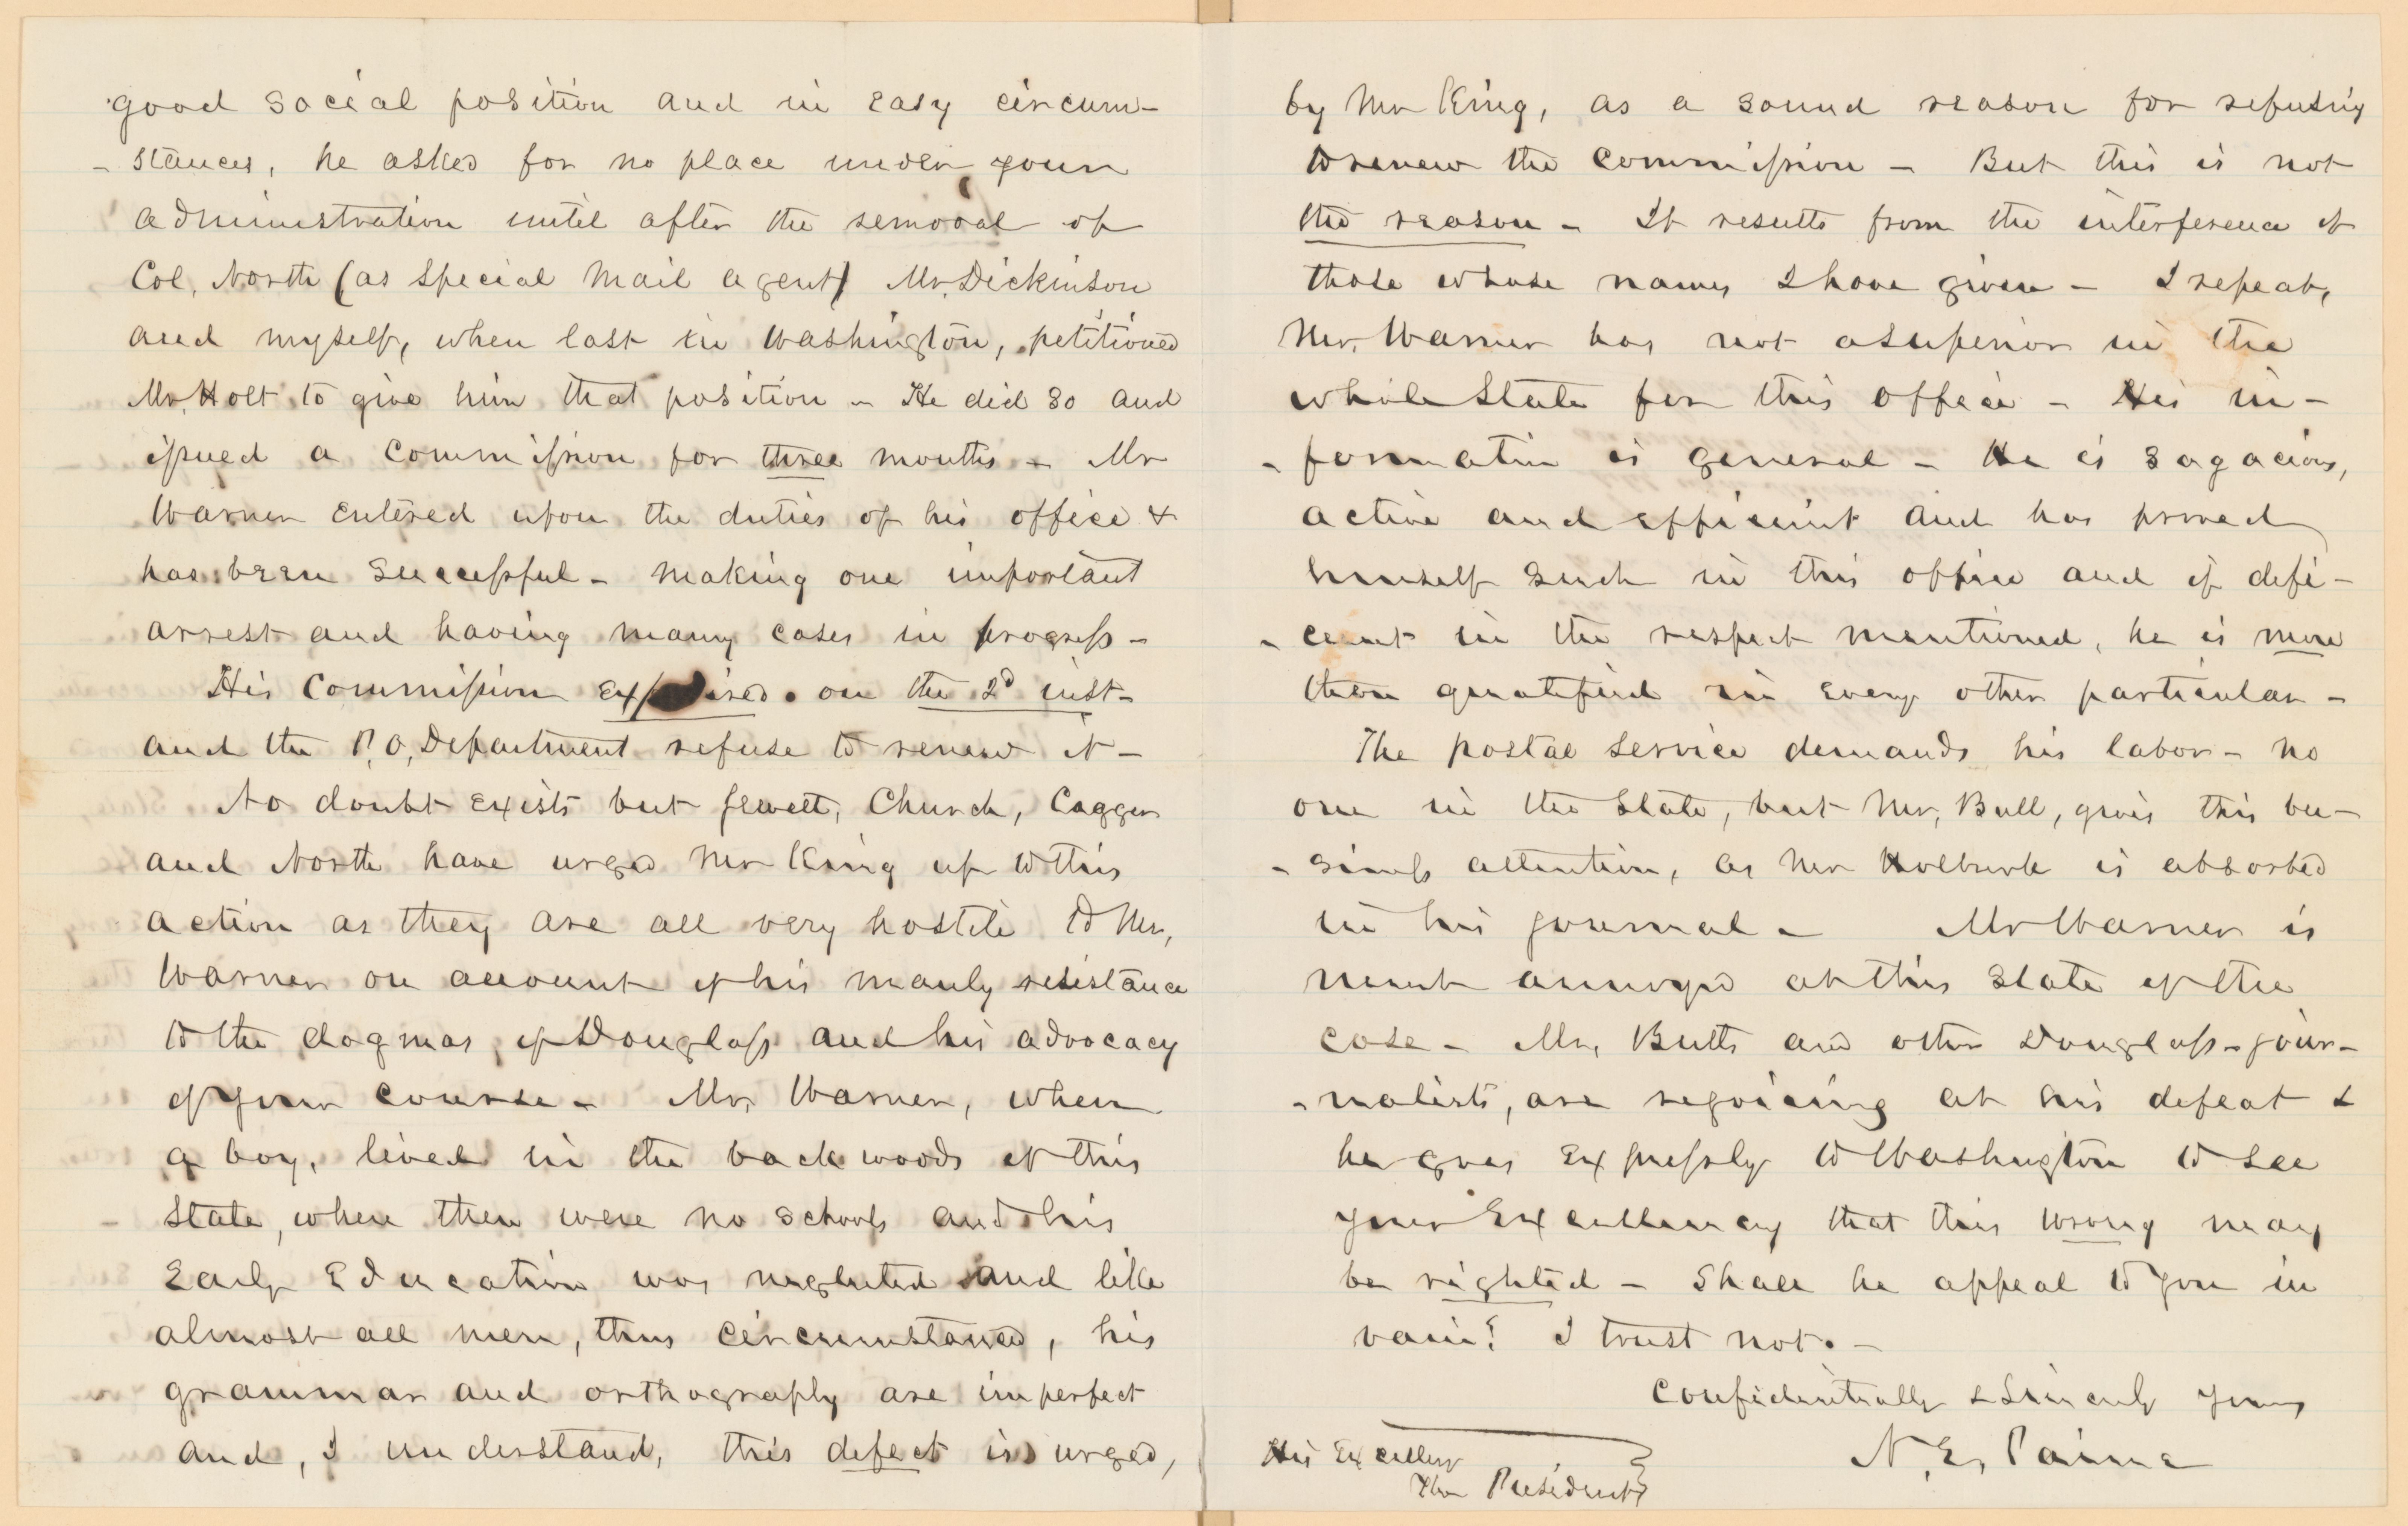 good social position and in easy circum-
- stances, he asked for no place under your
administration until after the removal of
Col. North (as special mail agent) Mr. Dickinson
and myself, when last in Washington, petitioned
Mr. Holt to give him that position - He did so and
issued a commission for three months - Mr
Warner entered upon the duties of his office &
has been successful - making one important
arrest and having many cases in progress -
His Commission expired on the 2d inst -
and the P.O. Department refuse to renew it -
No doubt exists but Jewett, Church, Cagger
and North have urged Mr King up to this
action as they are all very hostile to Mr.
Warner on account of his manly resistance
to the dogmas of Douglass and his advocacy
of your course - Mr. Warner, when
a boy, lived in the back woods of this
State, where there were no schools and his
Early Education was neglected and like
almost all men, thus circumstanced, his
grammar and orthography are imperfect
and, I understand, this defect is urged,
by Mr King, as a sound reason for refusing
to renew the commission - But this is not
the reason - It results from the interference of
those whose names I have given - I repeat,
Mr. Warner has not a superior in the
whole State for this office - His in-
- formation is general - He is sagacious,
active and efficient and has proved
himself such in this office and if defi-
- cient in the respect mentioned, he is more
than quallified in every other particular -
The postal service demands his labor - no
one in the State, but Mr. Bull, gives this bu-
- siness attention, as Mr Holbrook is absorbed
in his journal - Mr Warner is
much annoyed at this state of the
case - Mr. Butts and other Douglass-jour-
- nalists, are rejoicing at his defeat &
he goes expressly to Washington to see
your Excellency that this wrong may
be righted - Shall he appeal to you in
vain? I trust not. -
Confidentially & Sincerely yours
N. E. Paine
His Excellency
The President